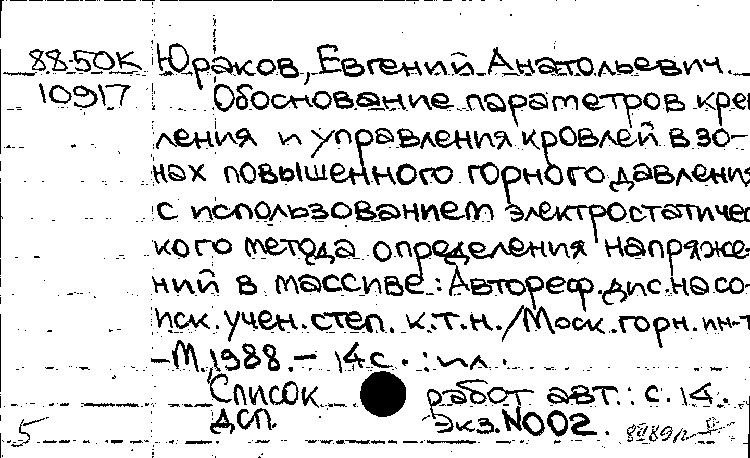 88-50К Юраков, Евгений Анатольевич.
10917 Обоснование параметров креп
ления и управления кровлей в зо-
нах повышенного горного давления
с использованием электростатичес
кого метода определения напряже-
ний в массиве: Автореф. дис. на со-
иск. учен. степ. к.т.н./Моск. горн. ин-т
-М., 1988. - 14 с. : ил.
Список работ авт.: с. 14.
5 ДСП. Экз. №002.